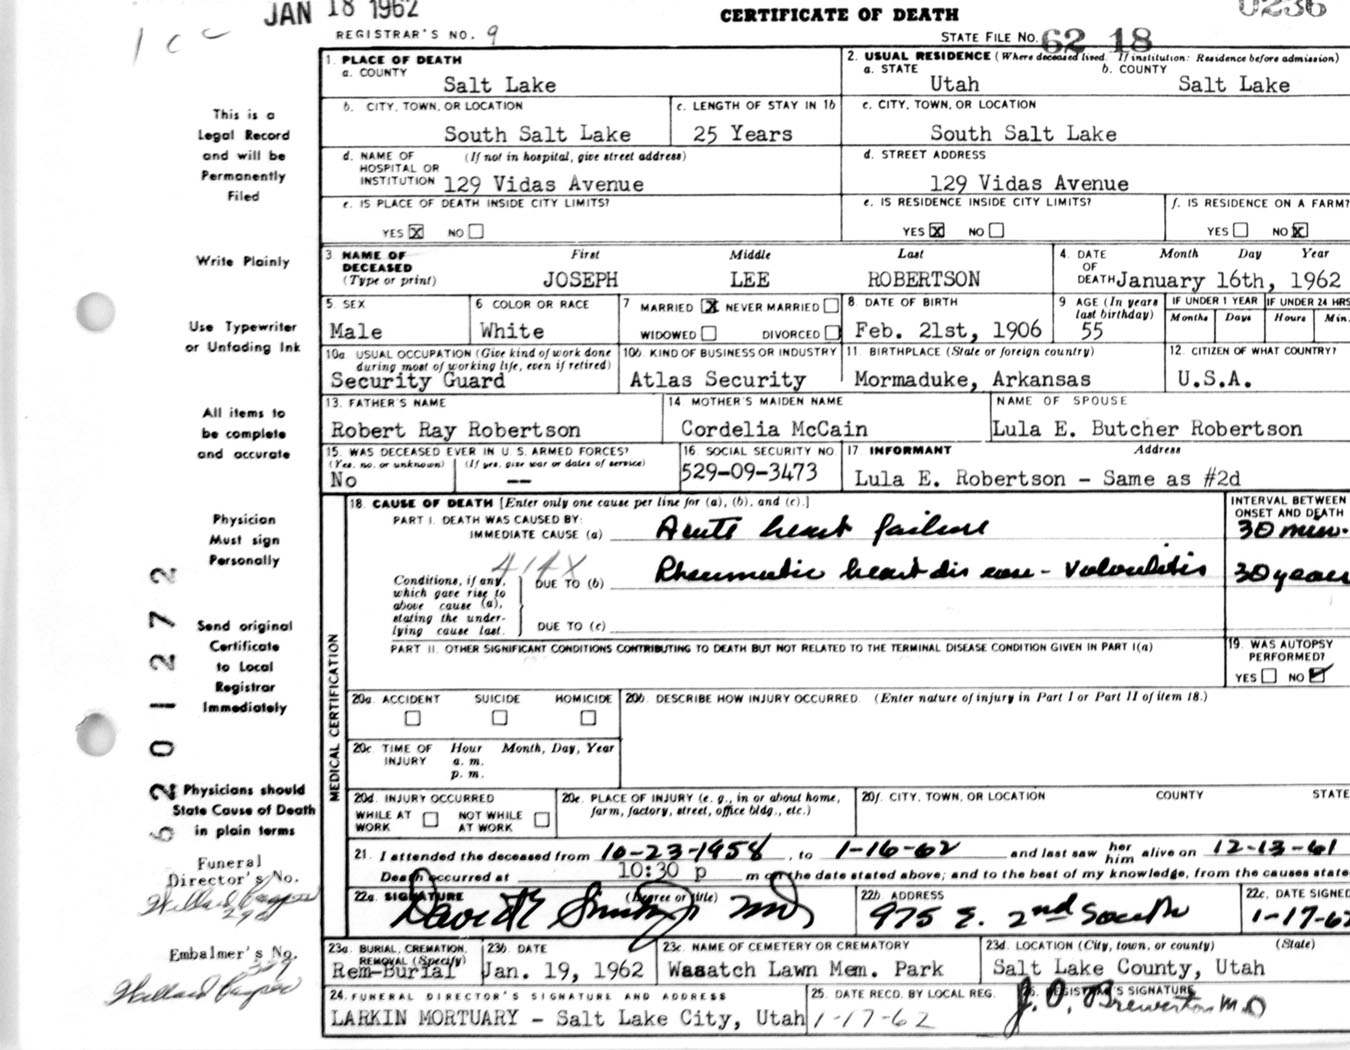 JAN 18 1962
CERTIFICATE OF DEATH
0236
1 c c
REGISTRAR'S NO. 9
STATE FILE NO. 62 18
This is a
Legal Record
and will be
Permanently
Filed
Write Plainly
Use Typewriter
or Unfading Ink
All items to
be complete
and accurate
Physician
Must sign
Personally
Send original
Certificate
to Local
Registrar
Immediately
Physicians should
State Cause of Death
in plain terms
Funeral
Director's No.
Embalmer's No.
62 01272
1. PLACE OF DEATH
a. COUNTY
Salt Lake
2. USUAL RESIDENCE (Where deceased lived. If institution: Residence before admission)
a. STATE b. COUNTY
Utah Salt Lake
b. CITY, TOWN, OR LOCATION
South Salt Lake
c. LENGTH OF STAY IN 1b
25 Years
c. CITY, TOWN, OR LOCATION
South Salt Lake
d. NAME OF HOSPITAL OR INSTITUTION (If not in hospital, give street address)
129 Vidas Avenue
d. STREET ADDRESS
129 Vidas Avenue
e. IS PLACE OF DEATH INSIDE CITY LIMITS?
YES X NO
e. IS RESIDENCE INSIDE CITY LIMITS?
YES X NO
f. IS RESIDENCE ON A FARM?
YES NO X
3 NAME OF DECEASED (Type or print)
First Middle Last
JOSEPH LEE ROBERTSON
4. DATE OF DEATH Month Day Year
January 16th, 1962
5. SEX
Male
6 COLOR OR RACE
White
7 MARRIED X NEVER MARRIED
WIDOWED DIVORCED
8. DATE OF BIRTH
Feb. 21st, 1906
9 AGE (In years last birthday)
55
IF UNDER 1 YEAR
Months Days
IF UNDER 24 HRS
Hours Min.
10a USUAL OCCUPATION (Give kind of work done during most of working life, even if retired)
Security Guard
10b. KIND OF BUSINESS OR INDUSTRY
Atlas Security
11. BIRTHPLACE (State or foreign country)
Mormaduke, Arkansas
12. CITIZEN OF WHAT COUNTRY?
U.S.A.
13. FATHER'S NAME
Robert Ray Robertson
14 MOTHER'S MAIDEN NAME
Cordelia McCain
NAME OF SPOUSE
Lula E. Butcher Robertson
15. WAS DECEASED EVER IN U. S. ARMED FORCES?
(Yes, no, or unknown) (If yes, give war or dates of service)
No --
16 SOCIAL SECURITY NO.
529-09-3473
17 INFORMANT Address
Lula E. Robertson - Same as #2d
MEDICAL CERTIFICATION
18. CAUSE OF DEATH [Enter only one cause per line for (a), (b), and (c).]
INTERVAL BETWEEN ONSET AND DEATH
PART I. DEATH WAS CAUSED BY:
IMMEDIATE CAUSE (a) Acute heart failure 30 min.
414X
Conditions, if any, which gave rise to above cause (a), stating the underlying cause last.
DUE TO (b) Rheumatic heart disease - Valvulitis 30 years
DUE TO (c)
PART II. OTHER SIGNIFICANT CONDITIONS CONTRIBUTING TO DEATH BUT NOT RELATED TO THE TERMINAL DISEASE CONDITION GIVEN IN PART I(a)
19. WAS AUTOPSY PERFORMED?
YES NO
20a. ACCIDENT SUICIDE HOMICIDE
20b. DESCRIBE HOW INJURY OCCURRED. (Enter nature of injury in Part I or Part II of item 18.)
20c. TIME OF INJURY Hour Month, Day, Year
a. m.
p. m.
20d. INJURY OCCURRED
WHILE AT WORK NOT WHILE AT WORK
20e. PLACE OF INJURY (e. g., in or about home, farm, factory, street, office bldg., etc.)
20f. CITY, TOWN, OR LOCATION COUNTY STATE
21. I attended the deceased from 10-23-1958, to 1-16-62 and last saw her him alive on 12-13-61
Death occurred at 10:30 p m on the date stated above; and to the best of my knowledge, from the causes state
22a. SIGNATURE (Degree or title)
22b ADDRESS
975 E. 2nd South
22c. DATE SIGNED
1-17-62
23a. BURIAL, CREMATION, REMOVAL (Specify)
Rem-Burial
23b. DATE
Jan. 19, 1962
23c. NAME OF CEMETERY OR CREMATORY
Wasatch Lawn Mem. Park
23d. LOCATION (City, town, or county) (State)
Salt Lake County, Utah
24. FUNERAL DIRECTOR'S SIGNATURE AND ADDRESS
LARKIN MORTUARY - Salt Lake City, Utah
25. DATE RECD. BY LOCAL REG.
1-17-62
26. REGISTRAR'S SIGNATURE